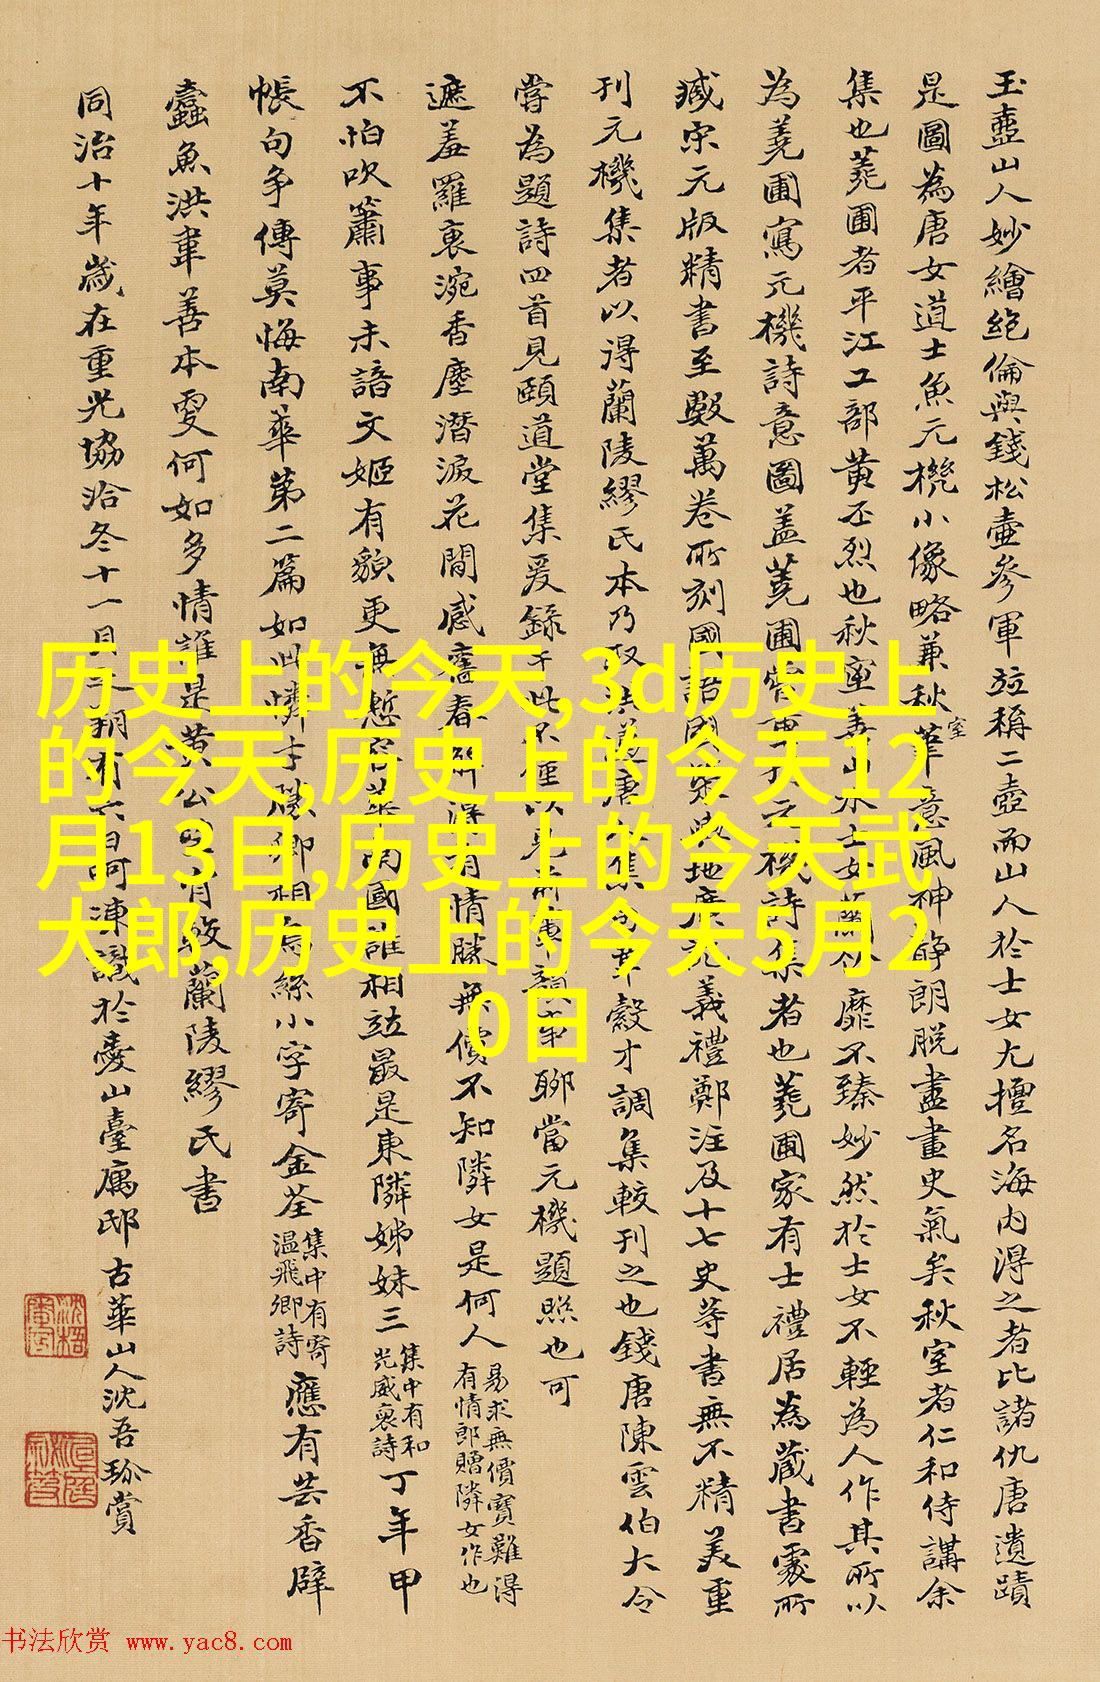 玉壺山人妙繪絕倫與錢松壺參軍並稱二壺而山人於士女尤擅名海内得之者比諸仇唐遺蹟
是圖為唐女道士魚元機小像略兼秋室筆意風神靜朗脫盡畫史氣矣秋室者仁和侍講余
集也蕘圃者平江工部黄丕烈也秋室善山水士女蘭竹靡不臻妙然於士女不輕為人作其所以
為蕘圃寫元機詩意圖盖蕘圃嘗重之機詩集者也蕘圃家有士禮居為藏書處所
臧宋元版精書至數萬卷所刻國語國策地廣元義禮鄭注及十七史等書無不精美重
刊元機集者以得蘭陵繆氏本乃唐集才調集較刊之也錢唐陳雲伯大令
嘗為題詩四首見頤道堂集爰錄于此聊當元機題照也可
遮羞羅裹涴香塵潛淚花間感舊春有情勝無價不知隣女是何人
易求無價寶難得
有情郎贈隣女作也
不怕吹簫事未諳文姬有貌更無慙南國誰相竝最是東隣姊妹三
集中有和
光威裒詩
丁年甲
帳句爭傳莫悔南華第二篇如此憐才勝卿相烏絲小字寄金荃
集中有寄
温飛卿詩
應有芸香辟
蠹魚洪韋善本更何如多情誰是黄公
蘭陵繆氏書
同治十年歲在重光協洽冬十一月呵凍識於臺寓邸古華山人沈吾珍賞
历史上的今天,3d历史上
的今天,历史上的今天12
月13日,历史上的今天武
大郎,历史上的今天5月2
0日
书法欣赏 www.yac8.com